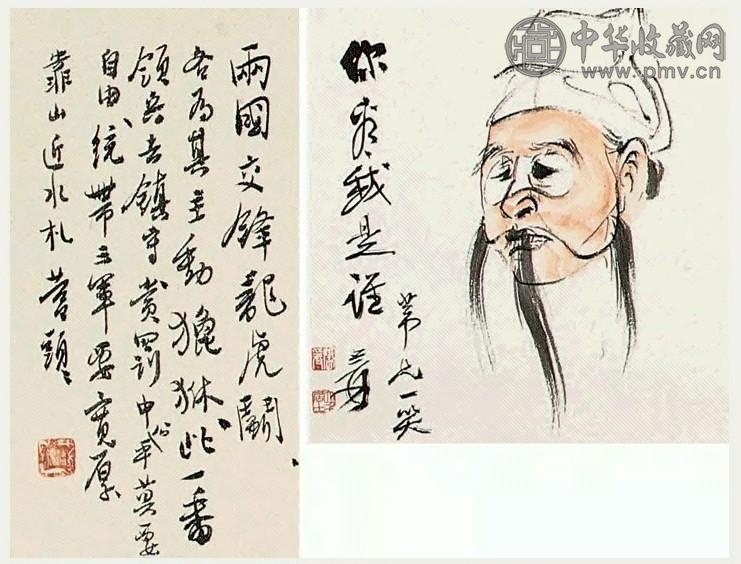 兩國交鋒龍虎鬭、
各為其主動貔貅此一番
領兵去鎮守賞罰中公平莫要
自由、統帶三軍要寬厚
靠山近水札營頭、
你看我是誰
一笑
爰
中华收藏网
www.pmv.cn